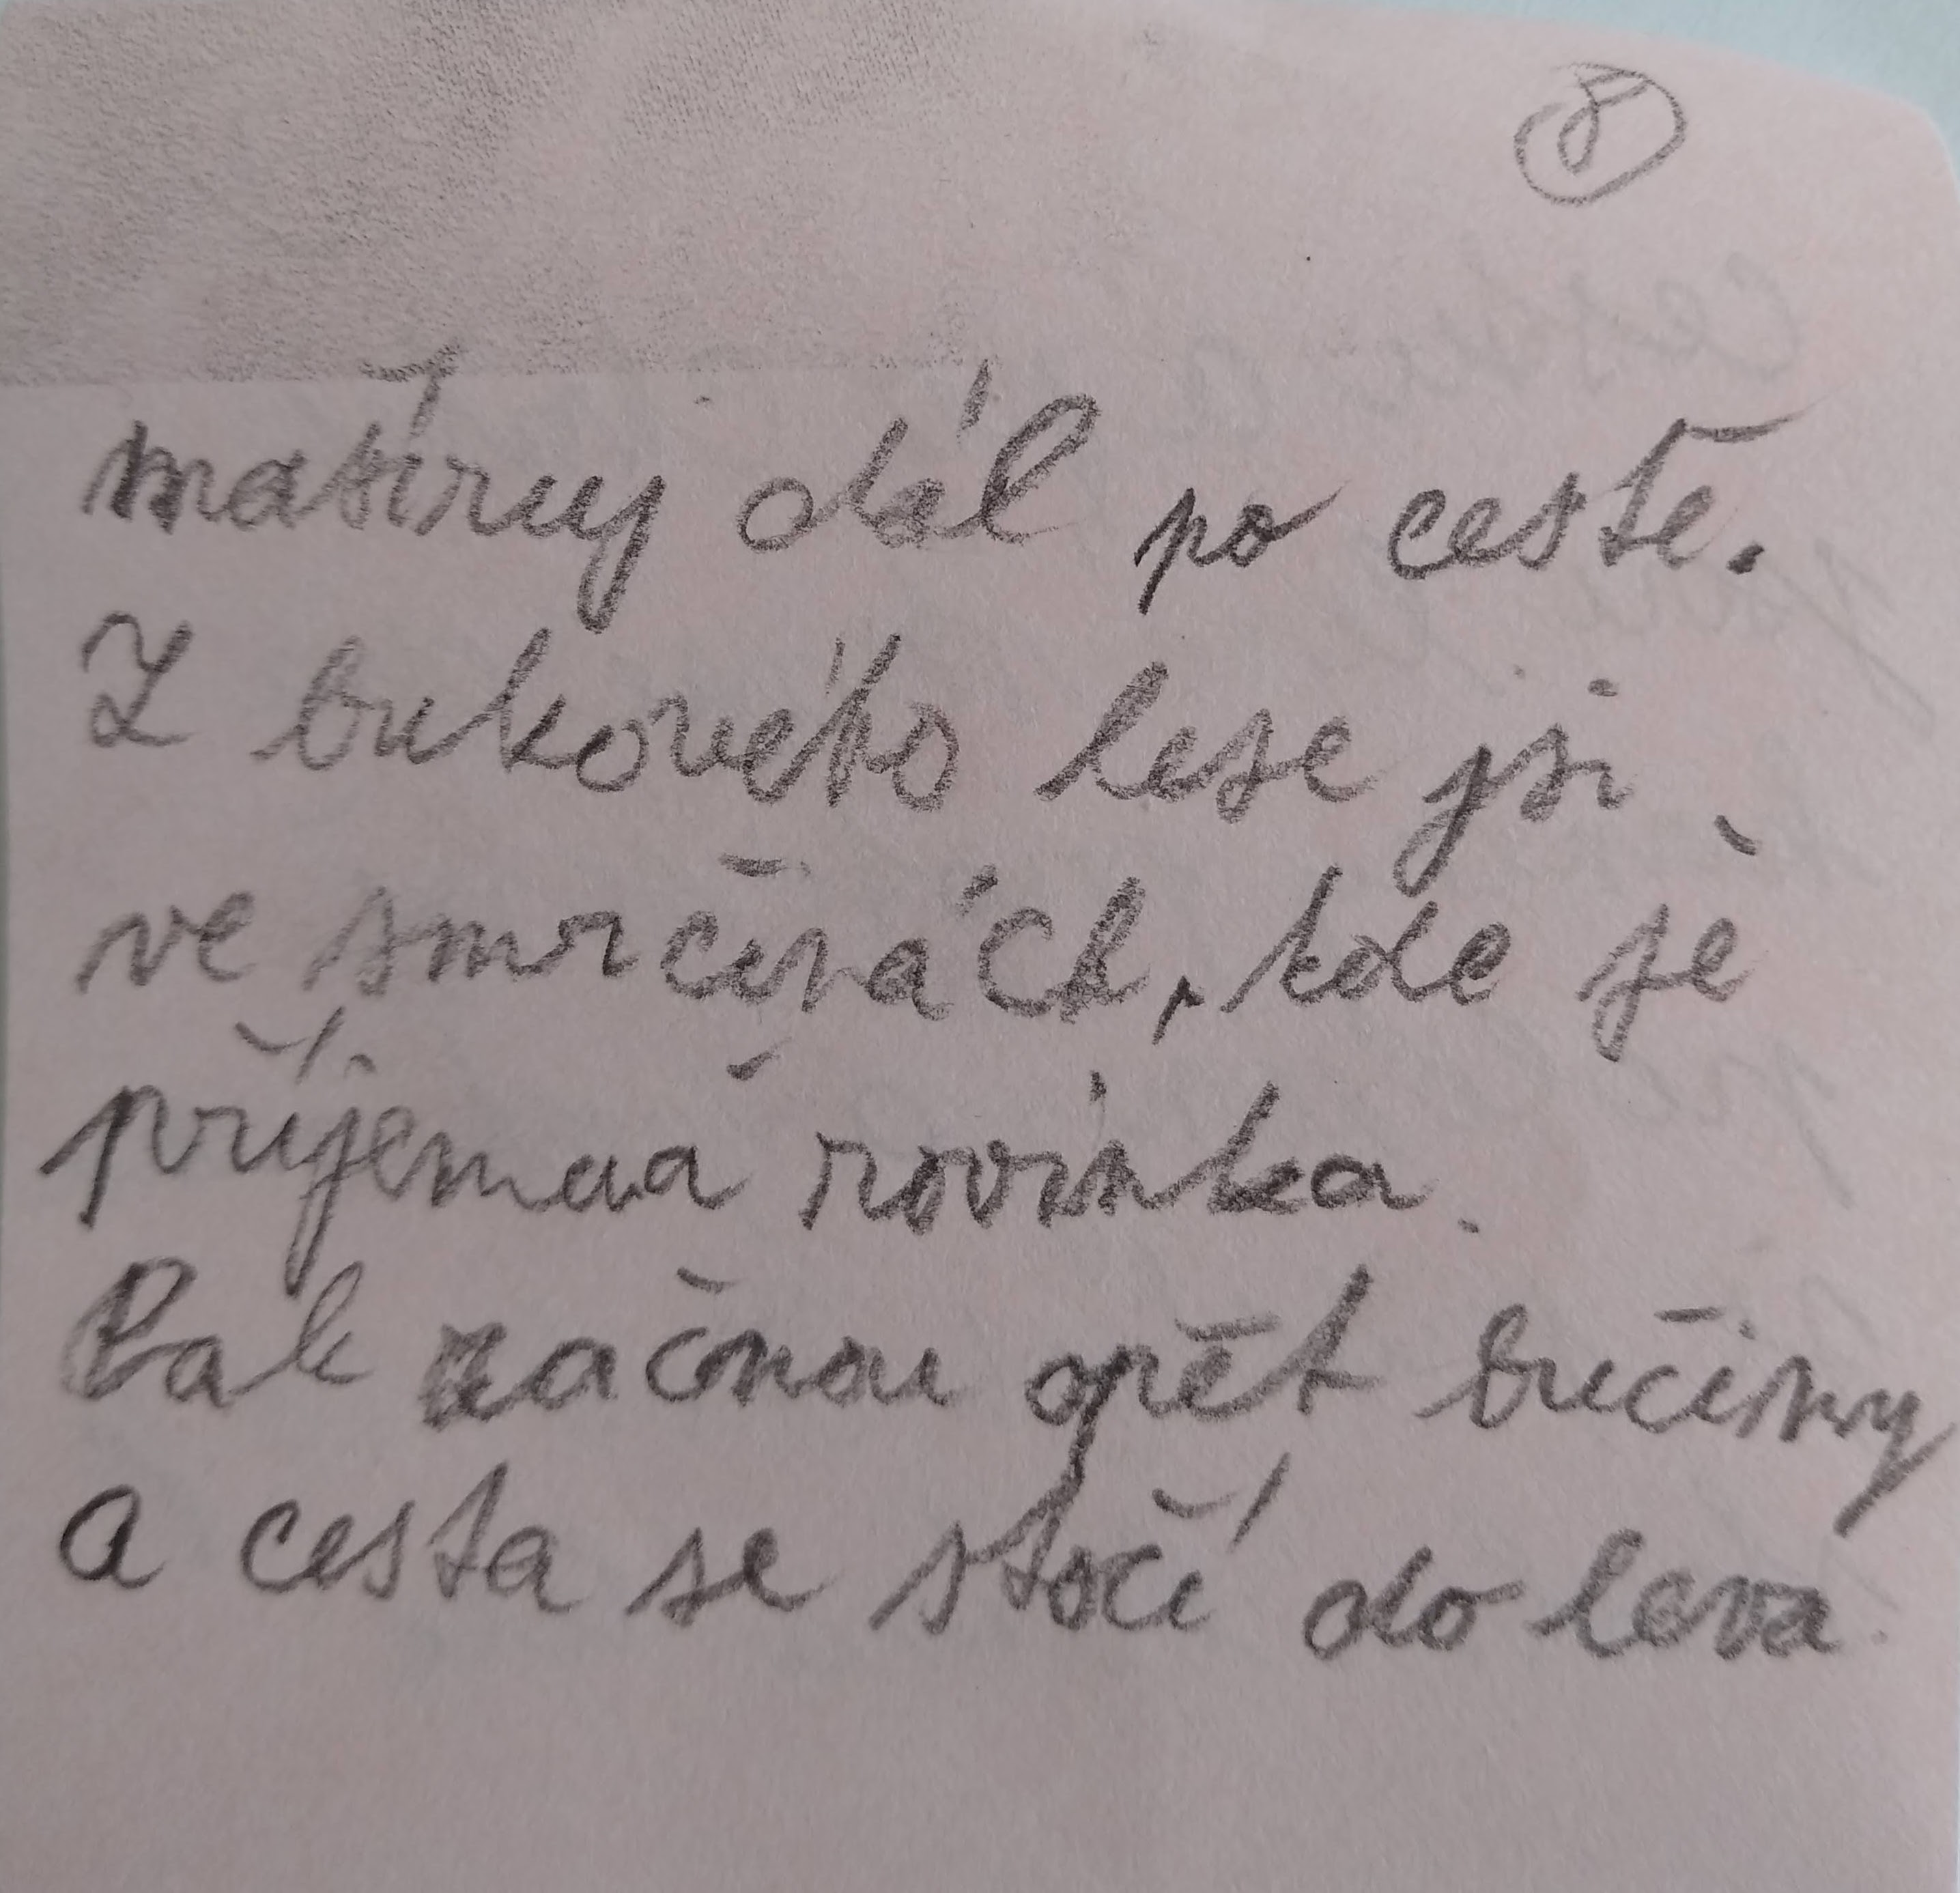 8
mašíruj dál po cestě.
Z bukového lese jsi
ve smrčinách, kde je
příjemná rovinka.
Pak začnou opět bučiny
a cesta se stočí do leva.